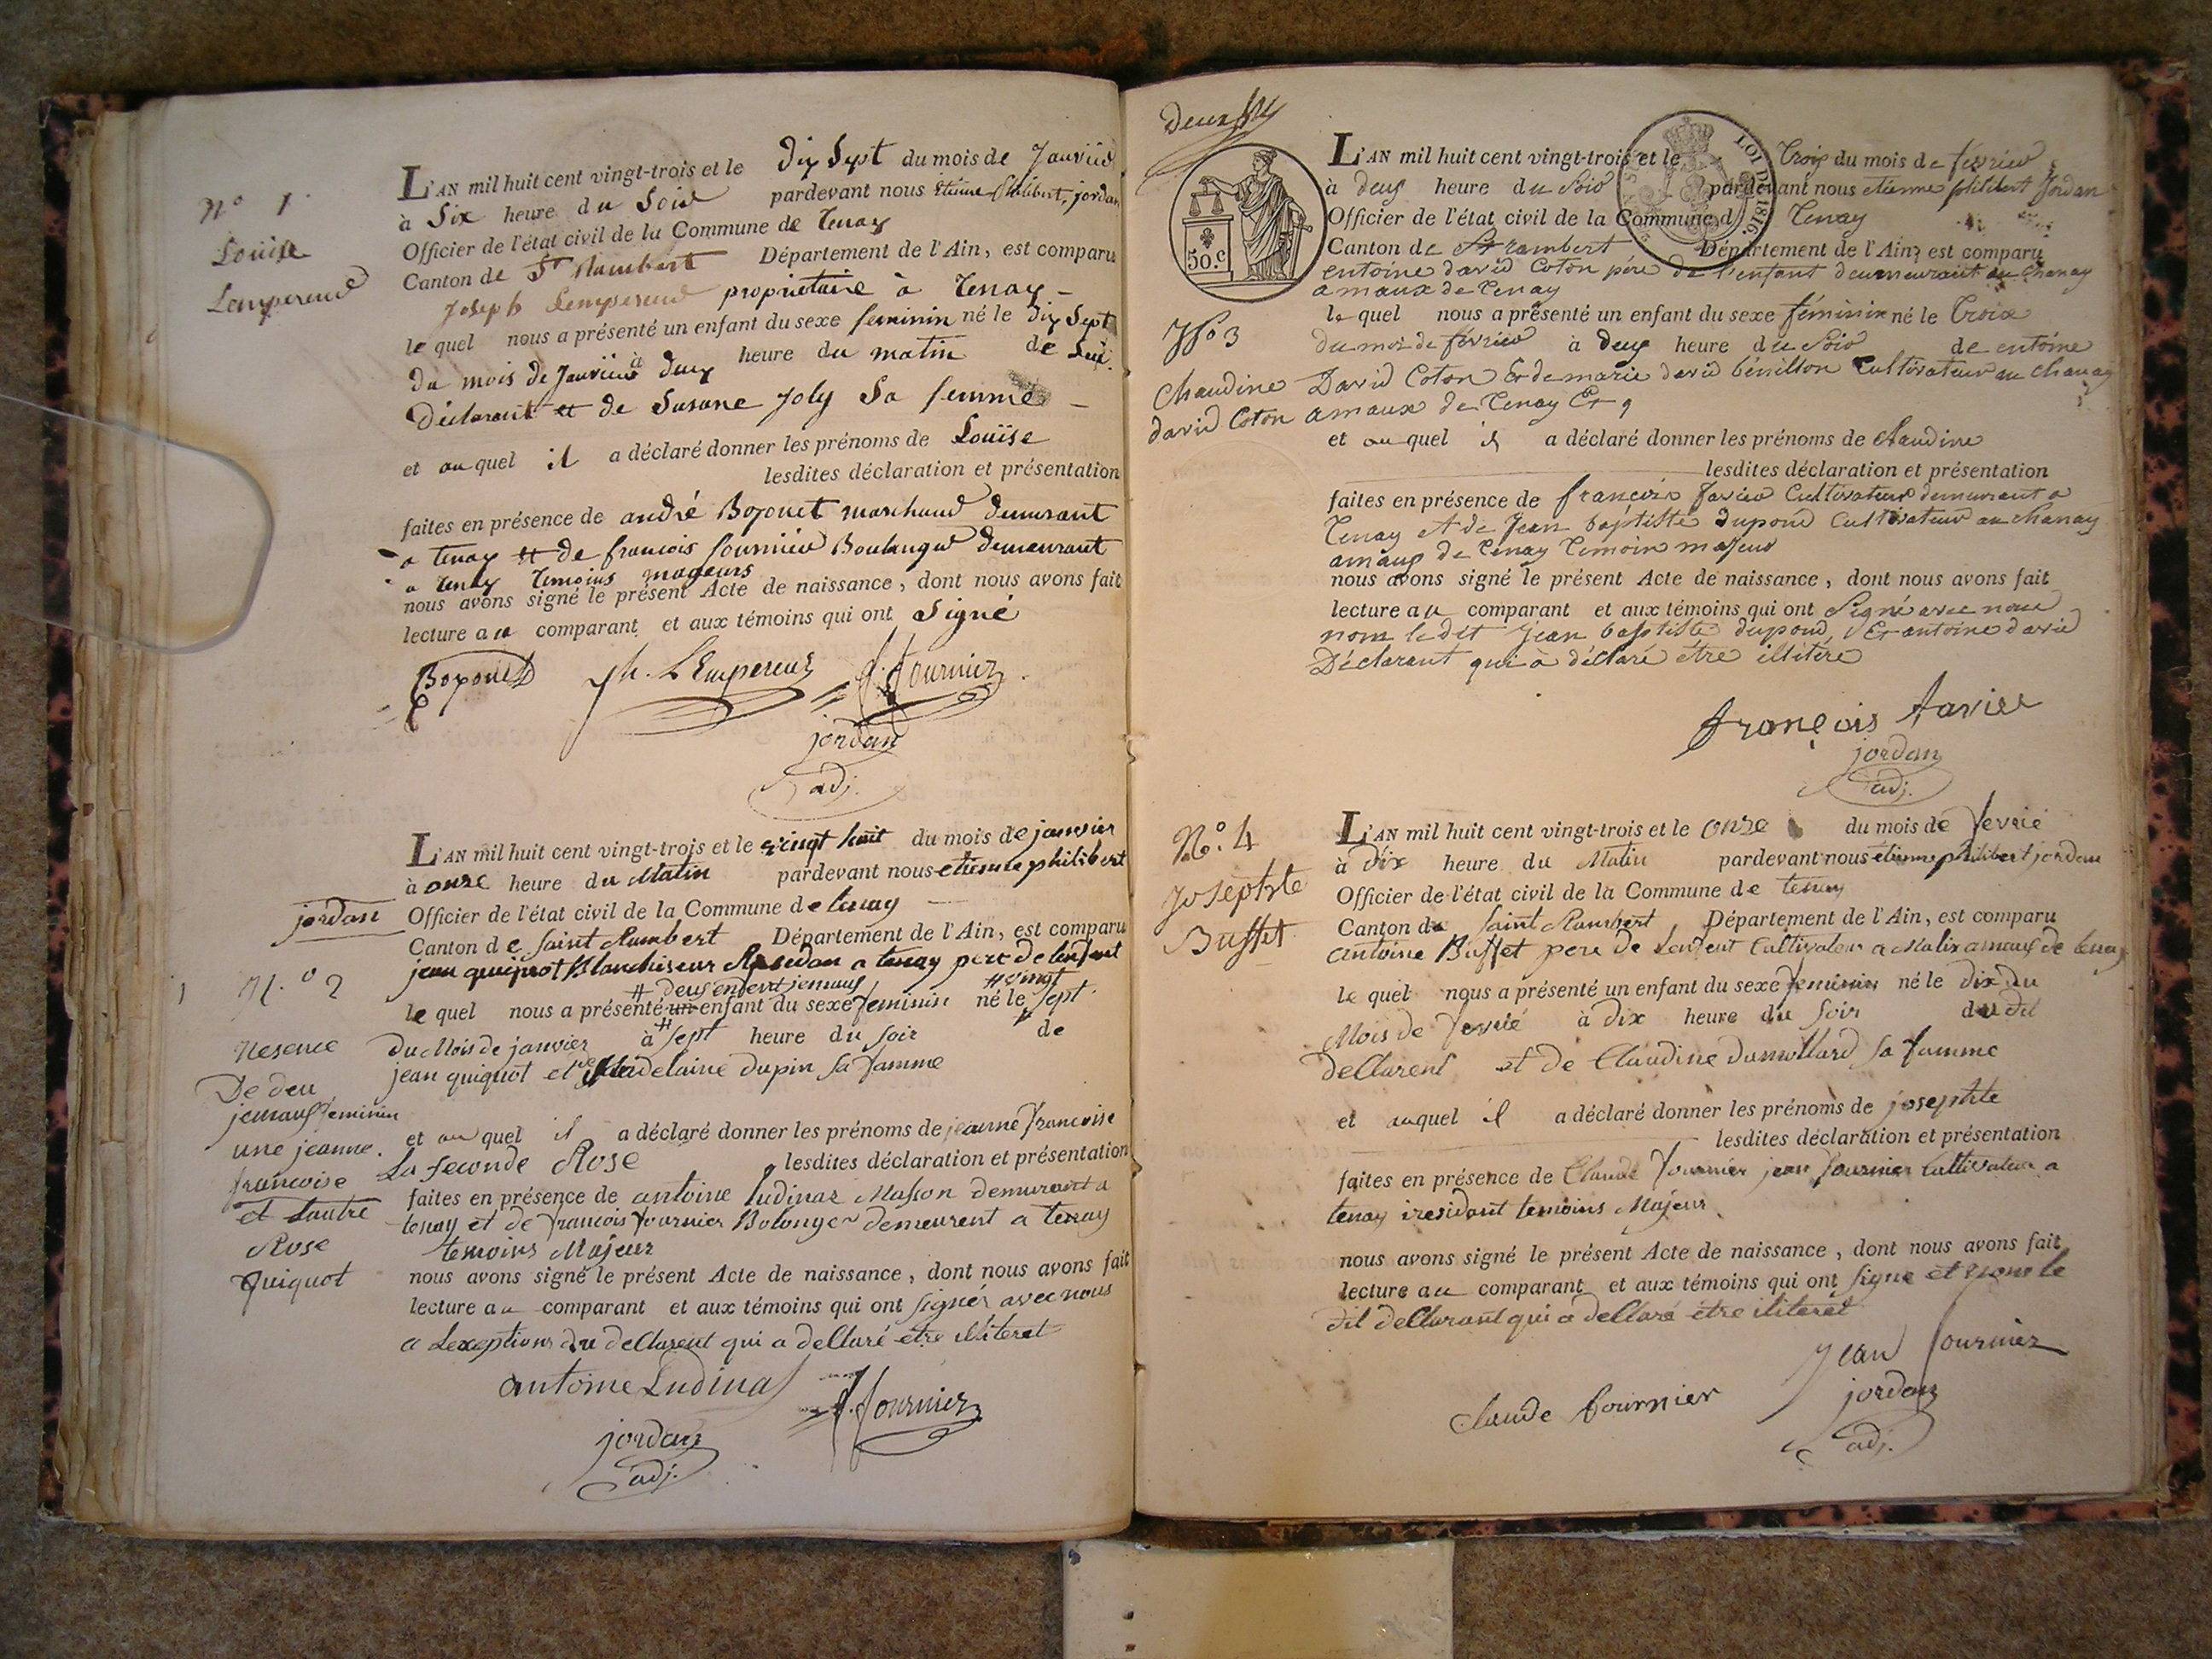 N° 1
Louise
Lempereur
L'AN mil huit cent vingt-trois et le dix Sept du mois de Janvier
à Six heure du Soir pardevant nous Etiene Philibert, jordan
Officier de l'état civil de la Commune de Tenay
Canton de St Rambert Département de l'Ain, est comparu
Joseph Lempereur propriétaire à Tenay
le quel nous a présenté un enfant du sexe feminin né le dix Sept
du mois de Janvier à deux heure du matin de lui
déclarant et de Susane Joly Sa femme
et au quel il a déclaré donner les prénoms de Louïse
lesdites déclaration et présentation
faites en présence de andré Bozonet marchand demurant
a tenay et de francois fournier Boulanger demeurant
a tenay temoins mageurs
nous avons signé le présent Acte de naissance, dont nous avons fait
lecture au comparant et aux témoins qui ont Signé
Bozonet Jh. LEmpereur f. fournier
jordan
adj.
L'AN mil huit cent vingt-trois et le vingt huit du mois de janvier
à onze heure du Matin pardevant nous etienne philibert
jordan Officier de l'état civil de la Commune de tenay
Canton de Saint Rambert Département de l'Ain, est comparu
jean quiquot Blanchiseur Resedan a tenay pere de lenfent
# deus enfent jemaus # vingt
le quel nous a présenté un enfant du sexe feminin né le sept
du Mois de janvier à sept heure du soir de
jean quiquot et Madelaine dupin sa famme
et au quel il a déclaré donner les prénoms de jeanne francoise
La seconde Rose lesdites déclaration et présentation
faites en présence de antoine Ludinas Masson demurant a
tenay et de francois fournier Bolonger demeurent a tenay
temoins Majeur
nous avons signé le présent Acte de naissance, dont nous avons fait
lecture au comparant et aux témoins qui ont signer avec nous
a Lexeptions du declarent qui a declaré etre illiteret
antoine Ludinas f. fournier
jordan
adj.
N.° 2
Nesence
De deu
jemaus feminin
une jeanne.
francoise
et Lautre
Rose
quiquot
deux
50.c
LOI DE 1816.
L'AN mil huit cent vingt-trois et le trois du mois de février
à deux heure du Soir pardevant nous etienne philibert Jordan
Officier de l'état civil de la Commune d Tenay
Canton de St rambert Département de l'Ain, est comparu
entoine david Coton pére de l'enfant deurmeurant au chanay
amaux de Tenay
le quel nous a présenté un enfant du sexe féminin né le troix
du moi de février à deux heure du Soir de entoine
David Coton Et de marie david bénillon Cultivateur au chanay
amaux de Tenay Et
et au quel il a déclaré donner les prénoms de Claudine
lesdites déclaration et présentation
faites en présence de françoix favier Cultivateur demeurant a
Tenay Et de Jean baptiste Dupond Cultivateur au chanay
amaux de Tenay Temoin majeur
nous avons signé le présent Acte de naissance, dont nous avons fait
lecture au comparant et aux témoins qui ont Signé avec nous
nom le dit Jean baptiste dupond, Et antoine david
Déclarant qui à déclaré étre illitere
françois favier
jordan
adj.
N° 3
Claudine
david Coton
N°. 4
Josephte
Buffet
L'AN mil huit cent vingt-trois et le onze du mois de fevrié
à dix heure du Matin pardevant nous etienne philibert jordan
Officier de l'état civil de la Commune de tenay
Canton de Saint Rambert Département de l'Ain, est comparu
antoine Buffet pere de Lenfent Cultivateur a Malix amaux de tenay
le quel nous a présenté un enfant du sexe feminin né le dix du
Mois de fevrié à dix heure du soir du dit
declarent et de Claudine dumollard sa famme
et auquel il a déclaré donner les prénoms de josephte
lesdites déclaration et présentation
faites en présence de Claude fournier jean fournier Cultivateur a
tenay iresidant temoins Majeur
nous avons signé le présent Acte de naissance, dont nous avons fait
lecture au comparant et aux témoins qui ont signe et nom le
dit declarant qui a declaré etre illiteret
Jean fournier
Claude fournier jordan
adj.